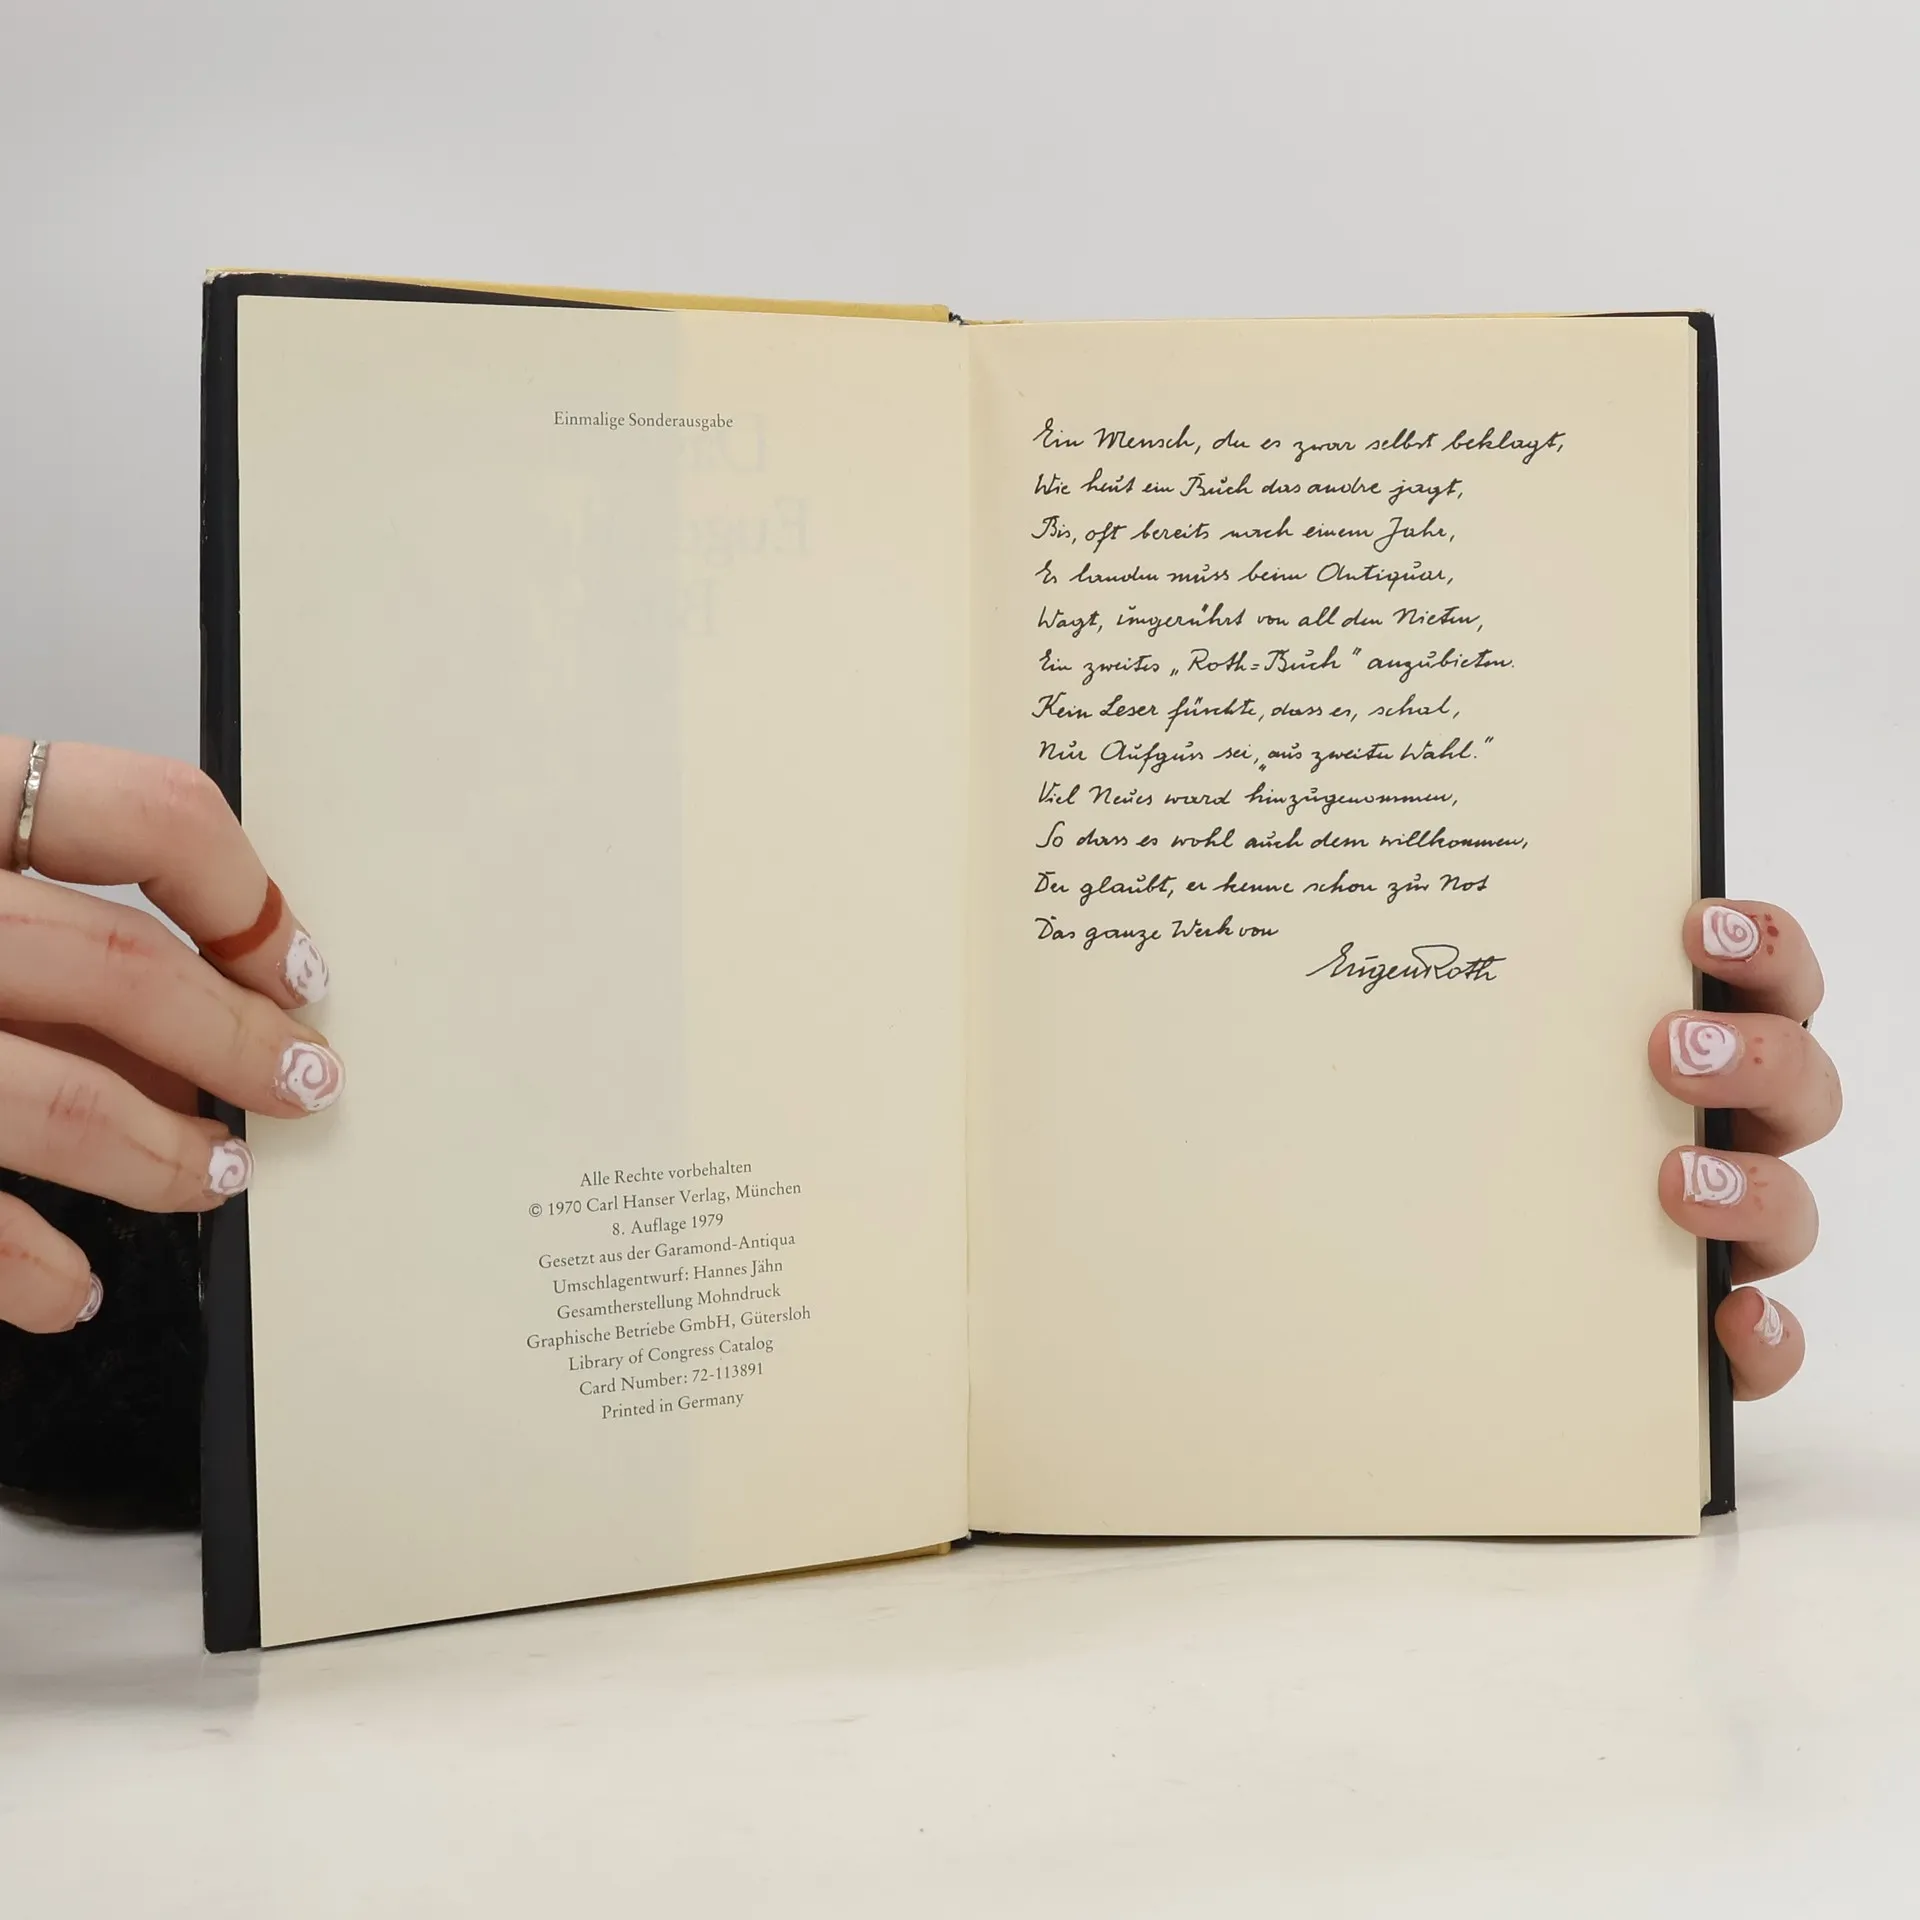 Einmalige Sonderausgabe
Alle Rechte vorbehalten
© 1970 Carl Hanser Verlag, München
8. Auflage 1979
Gesetzt aus der Garamond-Antiqua
Umschlagentwurf: Hannes Jähn
Gesamtherstellung Mohndruck
Graphische Betriebe GmbH, Gütersloh
Library of Congress Catalog
Card Number: 72-113891
Printed in Germany
Ein Mensch, der es zwar selbst beklagt,
Wie heut ein Buch das andre jagt,
Bis, oft bereits nach einem Jahr,
Es landen muss beim Antiquar,
Wagt, ungerührt von all den Nieten,
Ein zweites „Roth=Buch" anzubieten.
Kein Leser fürchte, dass es, schal,
Nur Aufguss sei, „aus zweiter Wahl."
Viel Neues ward hinzugenommen,
So dass es wohl auch dem willkommen,
Der glaubt, er kenne schon zur Not
Das ganze Werk von
Eugen Roth